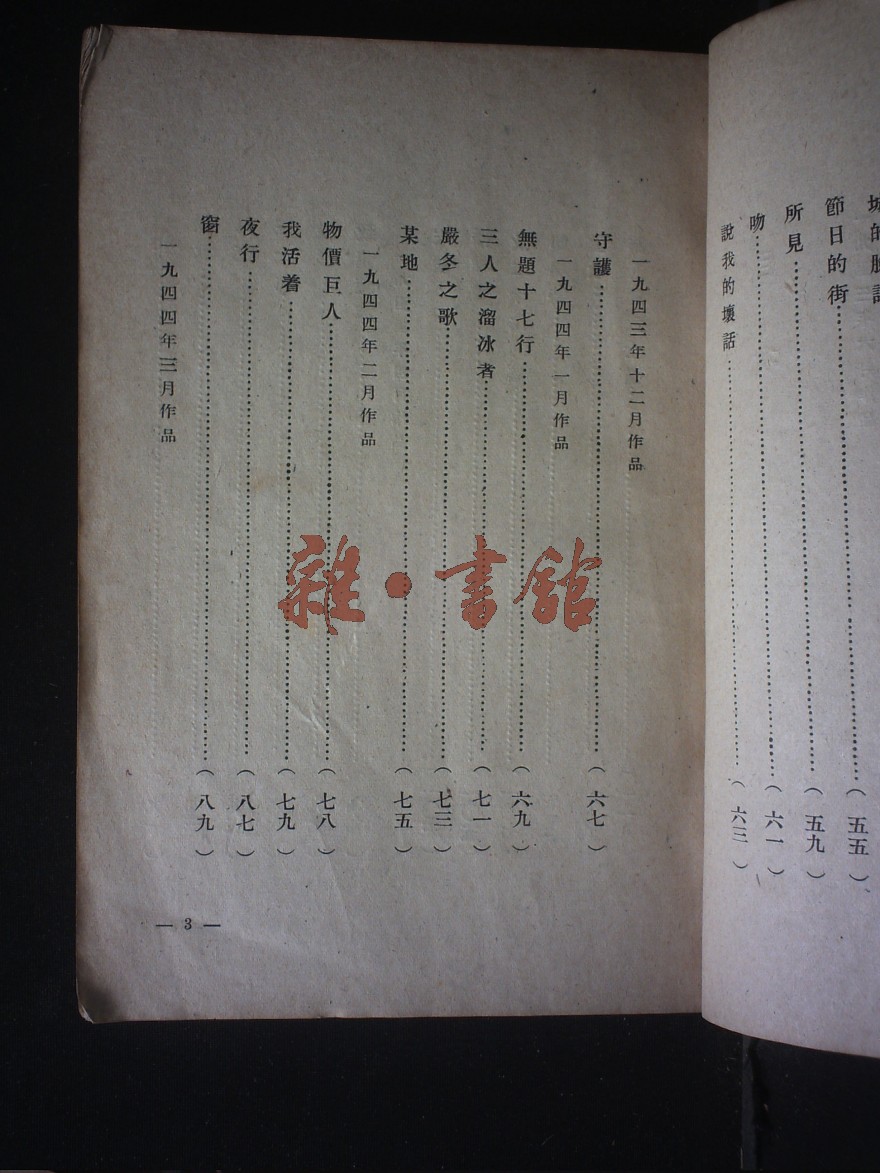 節日的街……(五五)
所見……(五九)
吻……(六一)
說我的壞話……(六三)
一九四三年十二月作品
守護……(六七)
一九四四年一月作品
無題十七行……(六九)
三人之溜冰者……(七一)
嚴冬之歌……(七三)
某地……(七五)
一九四四年二月作品
物價巨人……(七八)
我活着……(七九)
夜行……(八七)
窗……(八九)
一九四四年三月作品
— 3 —
雜·書館